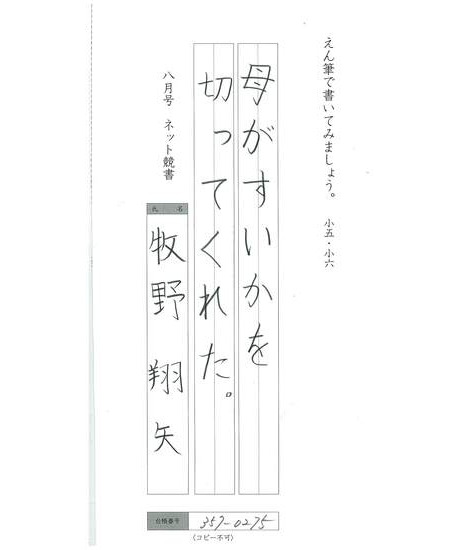 えん筆で書いてみましょう。 小五・小六
母がすいかを
切ってくれた。
八月号 ネット競書
氏 名
牧野 翔矢
台帳番号 357-0275
(コピー不可)